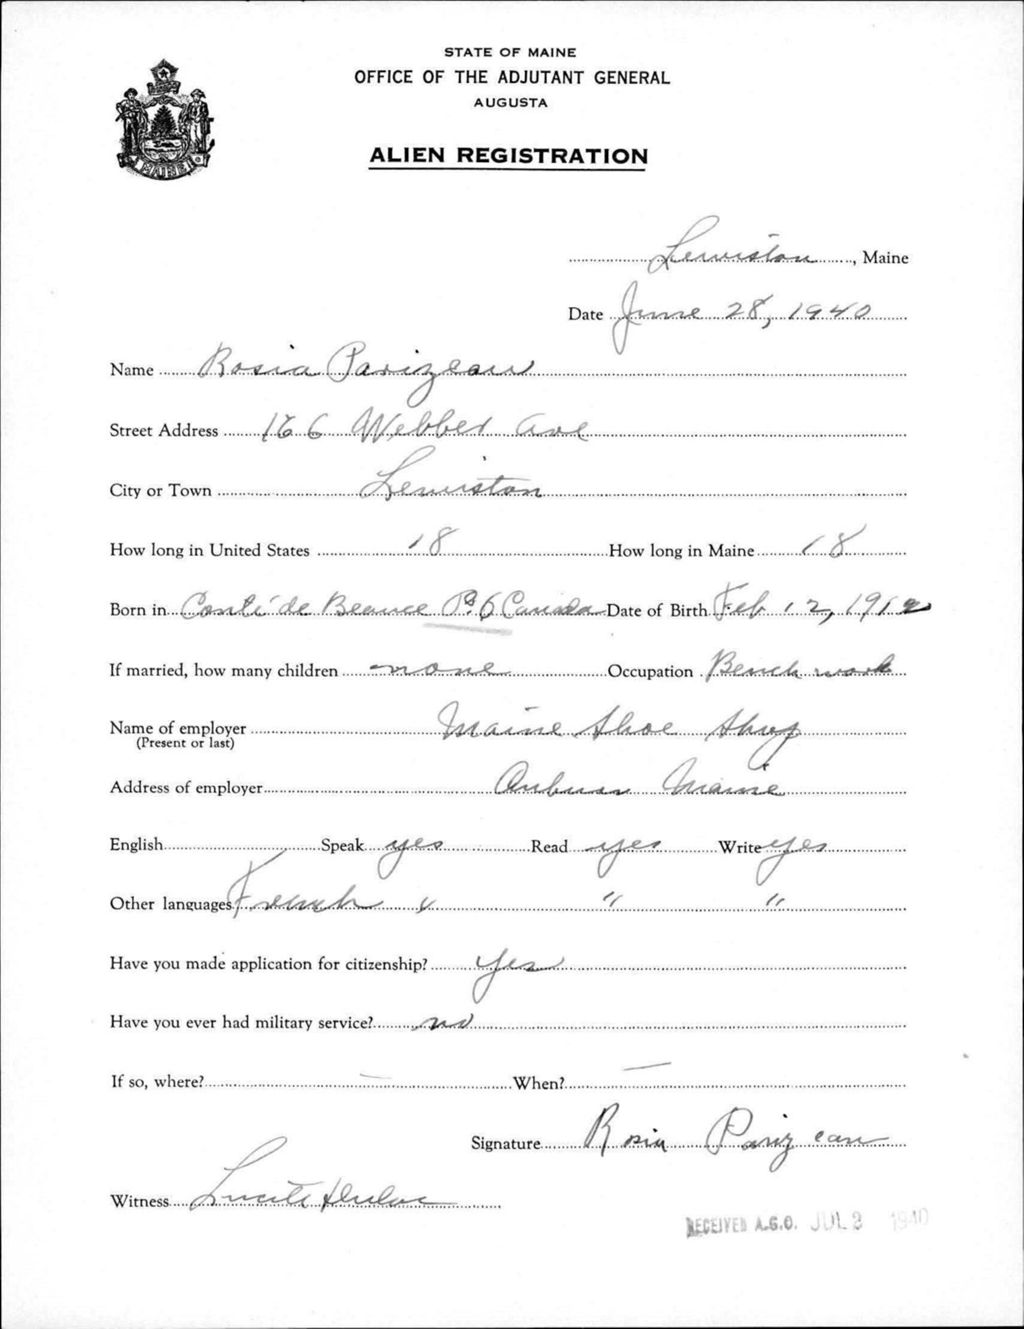 STATE OF MAINE
OFFICE OF THE ADJUTANT GENERAL
AUGUSTA
ALIEN REGISTRATION
MAINE
Lewiston, Maine
Date June 28, 1940
Name Rosia Parizeau
Street Address 166 Webber Ave
City or Town Lewiston
How long in United States 18 How long in Maine 18
Born in Conté de Beauce P.Q Canada Date of Birth Feb 12, 1912
If married, how many children none Occupation Bench work
Name of employer Maine Shoe Shop
(Present or last)
Address of employer Auburn Maine
English Speak yes Read yes Write yes
Other languages French " " "
Have you made application for citizenship? Yes
Have you ever had military service? no
If so, where? — When? —
Signature Rosia Parizeau
Witness
RECEIVED A.G.O. JUL 3 1940